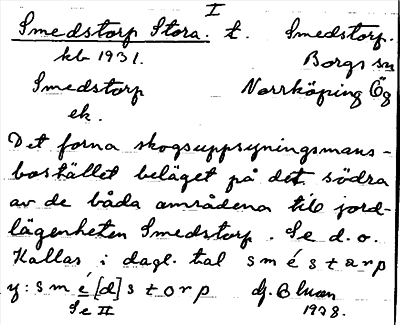 I
Smedstorp Stora. t. Smedstorp.
kb 1931. Borgs sn
Smedstorp Norrköping Ög
ek.
Det forna skogsuppsyningsmans-
bostället beläget på det södra
av de båda områdena till jord-
lägenheten Smedstorp. Se d.o.
Kallas i dagl. tal s m é s t a r p
y: s m é [d] s t o r p
Se II 1928.